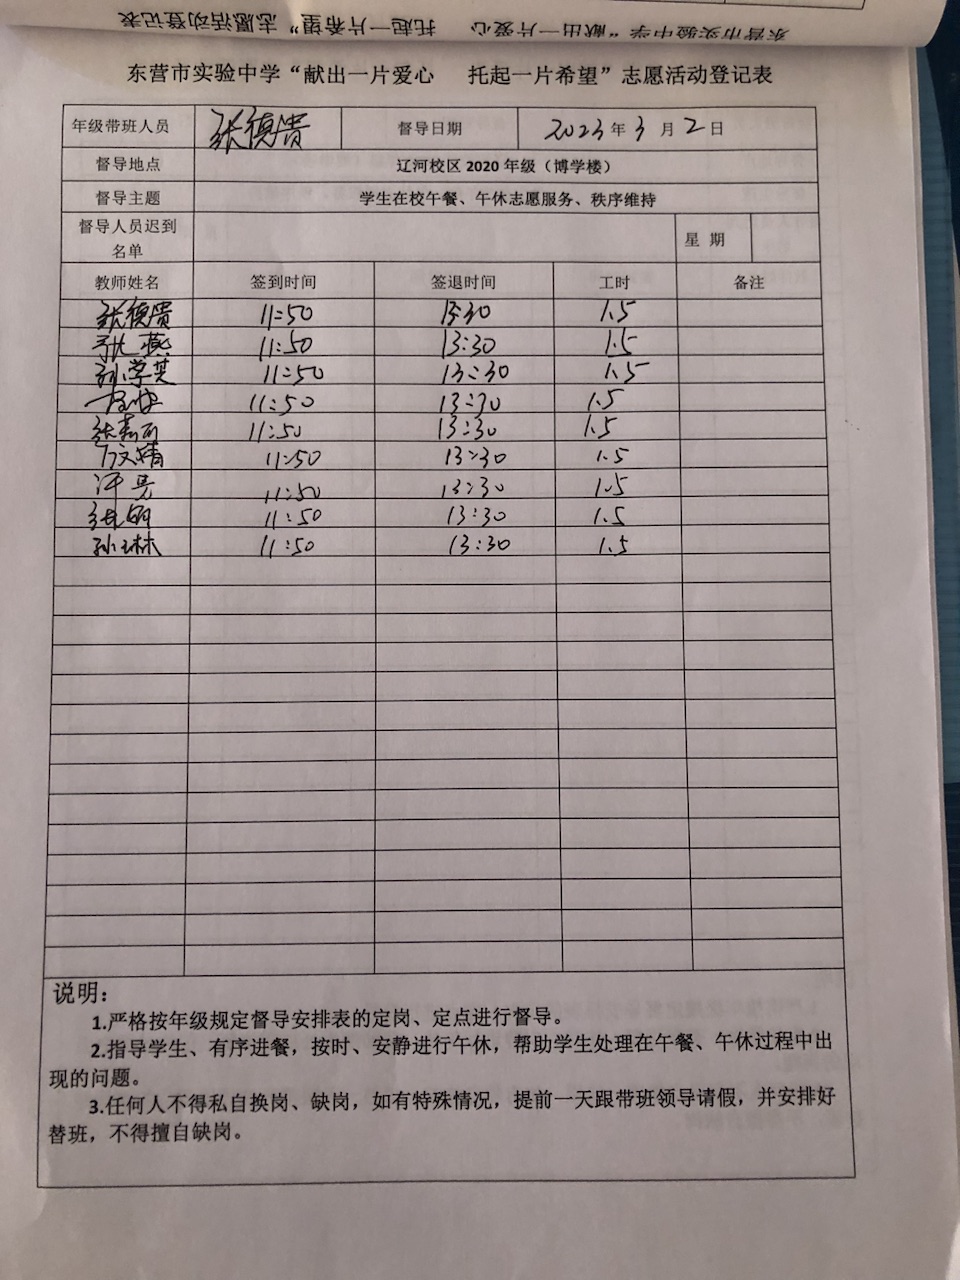 东营市实验中学“献出一片爱心 托起一片希望”志愿活动登记表
东营市实验中学“献出一片爱心 托起一片希望”志愿活动登记表
年级带班人员 张德贵 督导日期 2023年3月2日
督导地点 辽河校区2020年级（博学楼）
督导主题 学生在校午餐、午休志愿服务、秩序维持
督导人员迟到
名单 星期
教师姓名 签到时间 签退时间 工时 备注
张德贵 11:50 13:30 1.5
张燕 11:50 13:30 1.5
孙学英 11:50 13:30 1.5
11:50 13:30 1.5
11:50 13:30 1.5
11:50 13:30 1.5
11:50 13:30 1.5
11:50 13:30 1.5
孙林 11:50 13:30 1.5
说明：
1.严格按年级规定督导安排表的定岗、定点进行督导。
2.指导学生、有序进餐，按时、安静进行午休，帮助学生处理在午餐、午休过程中出
现的问题。
3.任何人不得私自换岗、缺岗，如有特殊情况，提前一天跟带班领导请假，并安排好
替班，不得擅自缺岗。